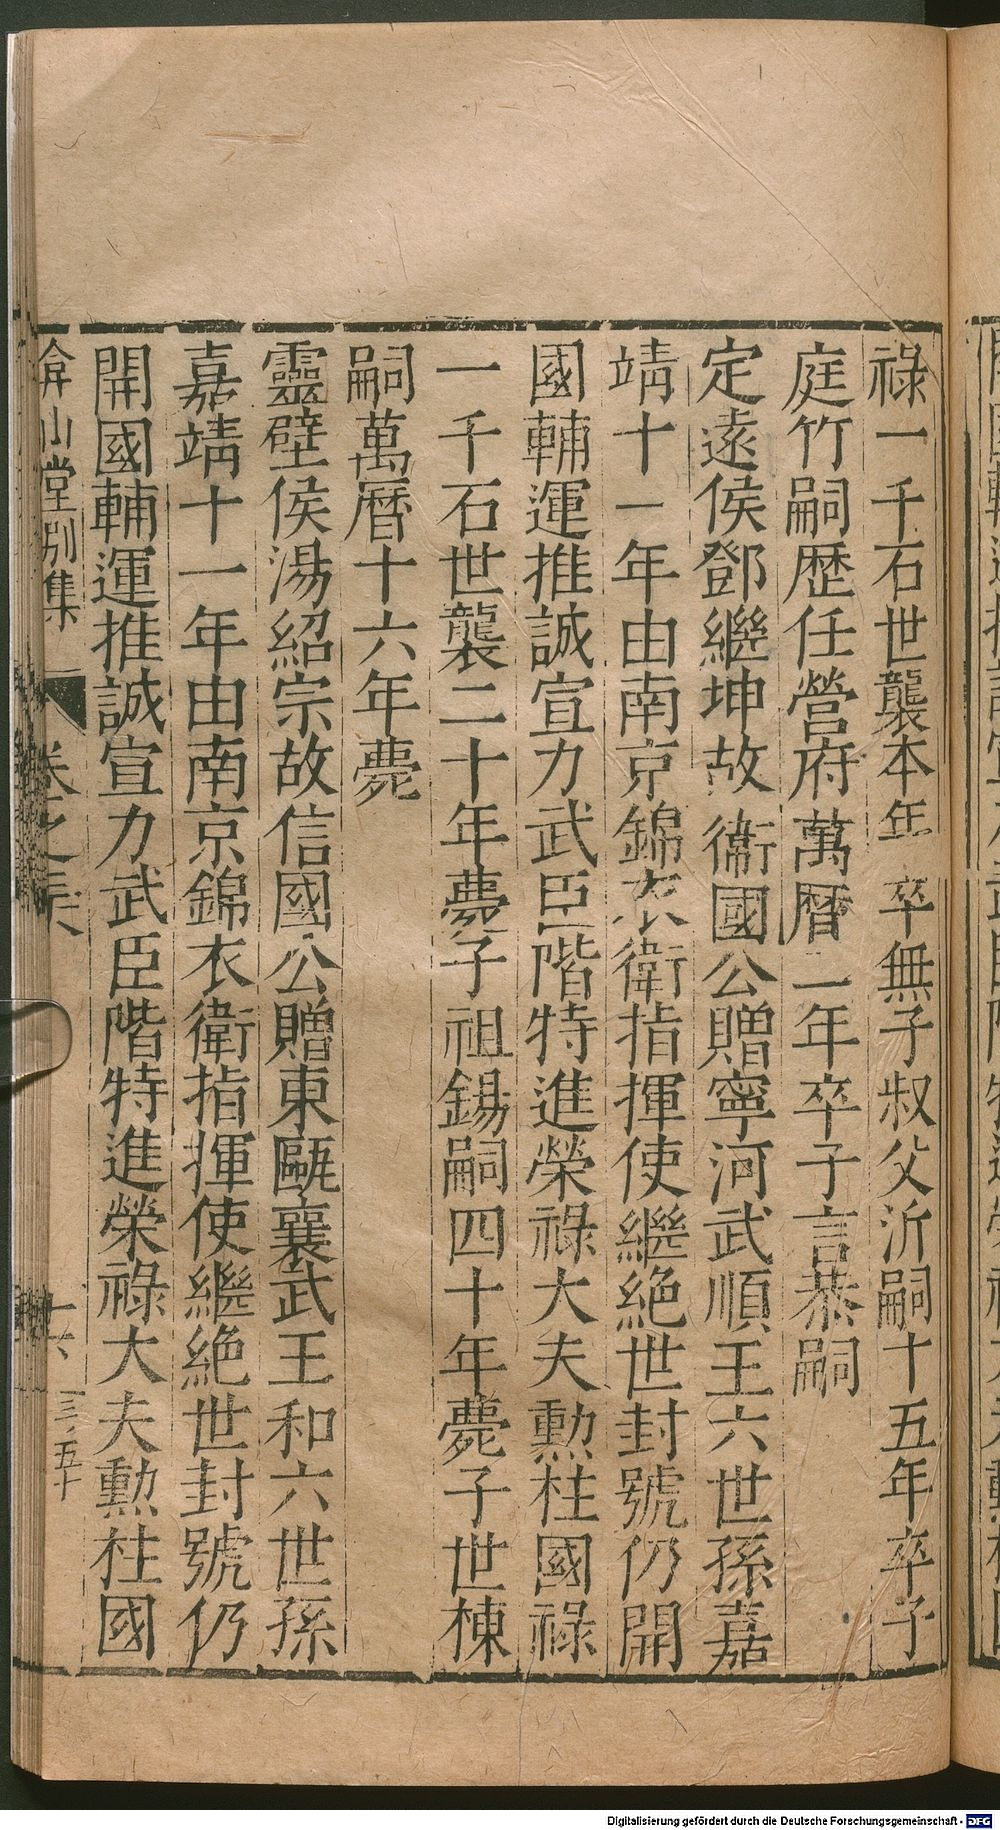 祿一千石世襲本年卒無子叔父沂嗣十五年卒子
庭竹嗣歷任營府萬曆二年卒子言恭嗣
定遠侯鄧繼坤故衞國公贈寧河武順王六世孫嘉
靖十一年由南京錦衣衛指揮使繼絶世封號仍開
國輔運推誠宣力武臣階特進榮祿大夫勲柱國祿
一千石世襲二十年薨子祖錫嗣四十年薨子世棟
嗣萬曆十六年薨
靈壁侯湯紹宗故信國公贈東甌襄武王和六世孫
嘉靖十一年由南京錦衣衛指揮使繼絶世封號仍
開國輔運推誠宣力武臣階特進榮祿大夫勲柱國
弇山堂別集 卷之三 十六 三、五十
Digitalisierung gefördert durch die Deutsche Forschungsgemeinschaft - DFG